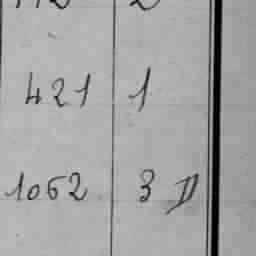 421 1
1062 3 D